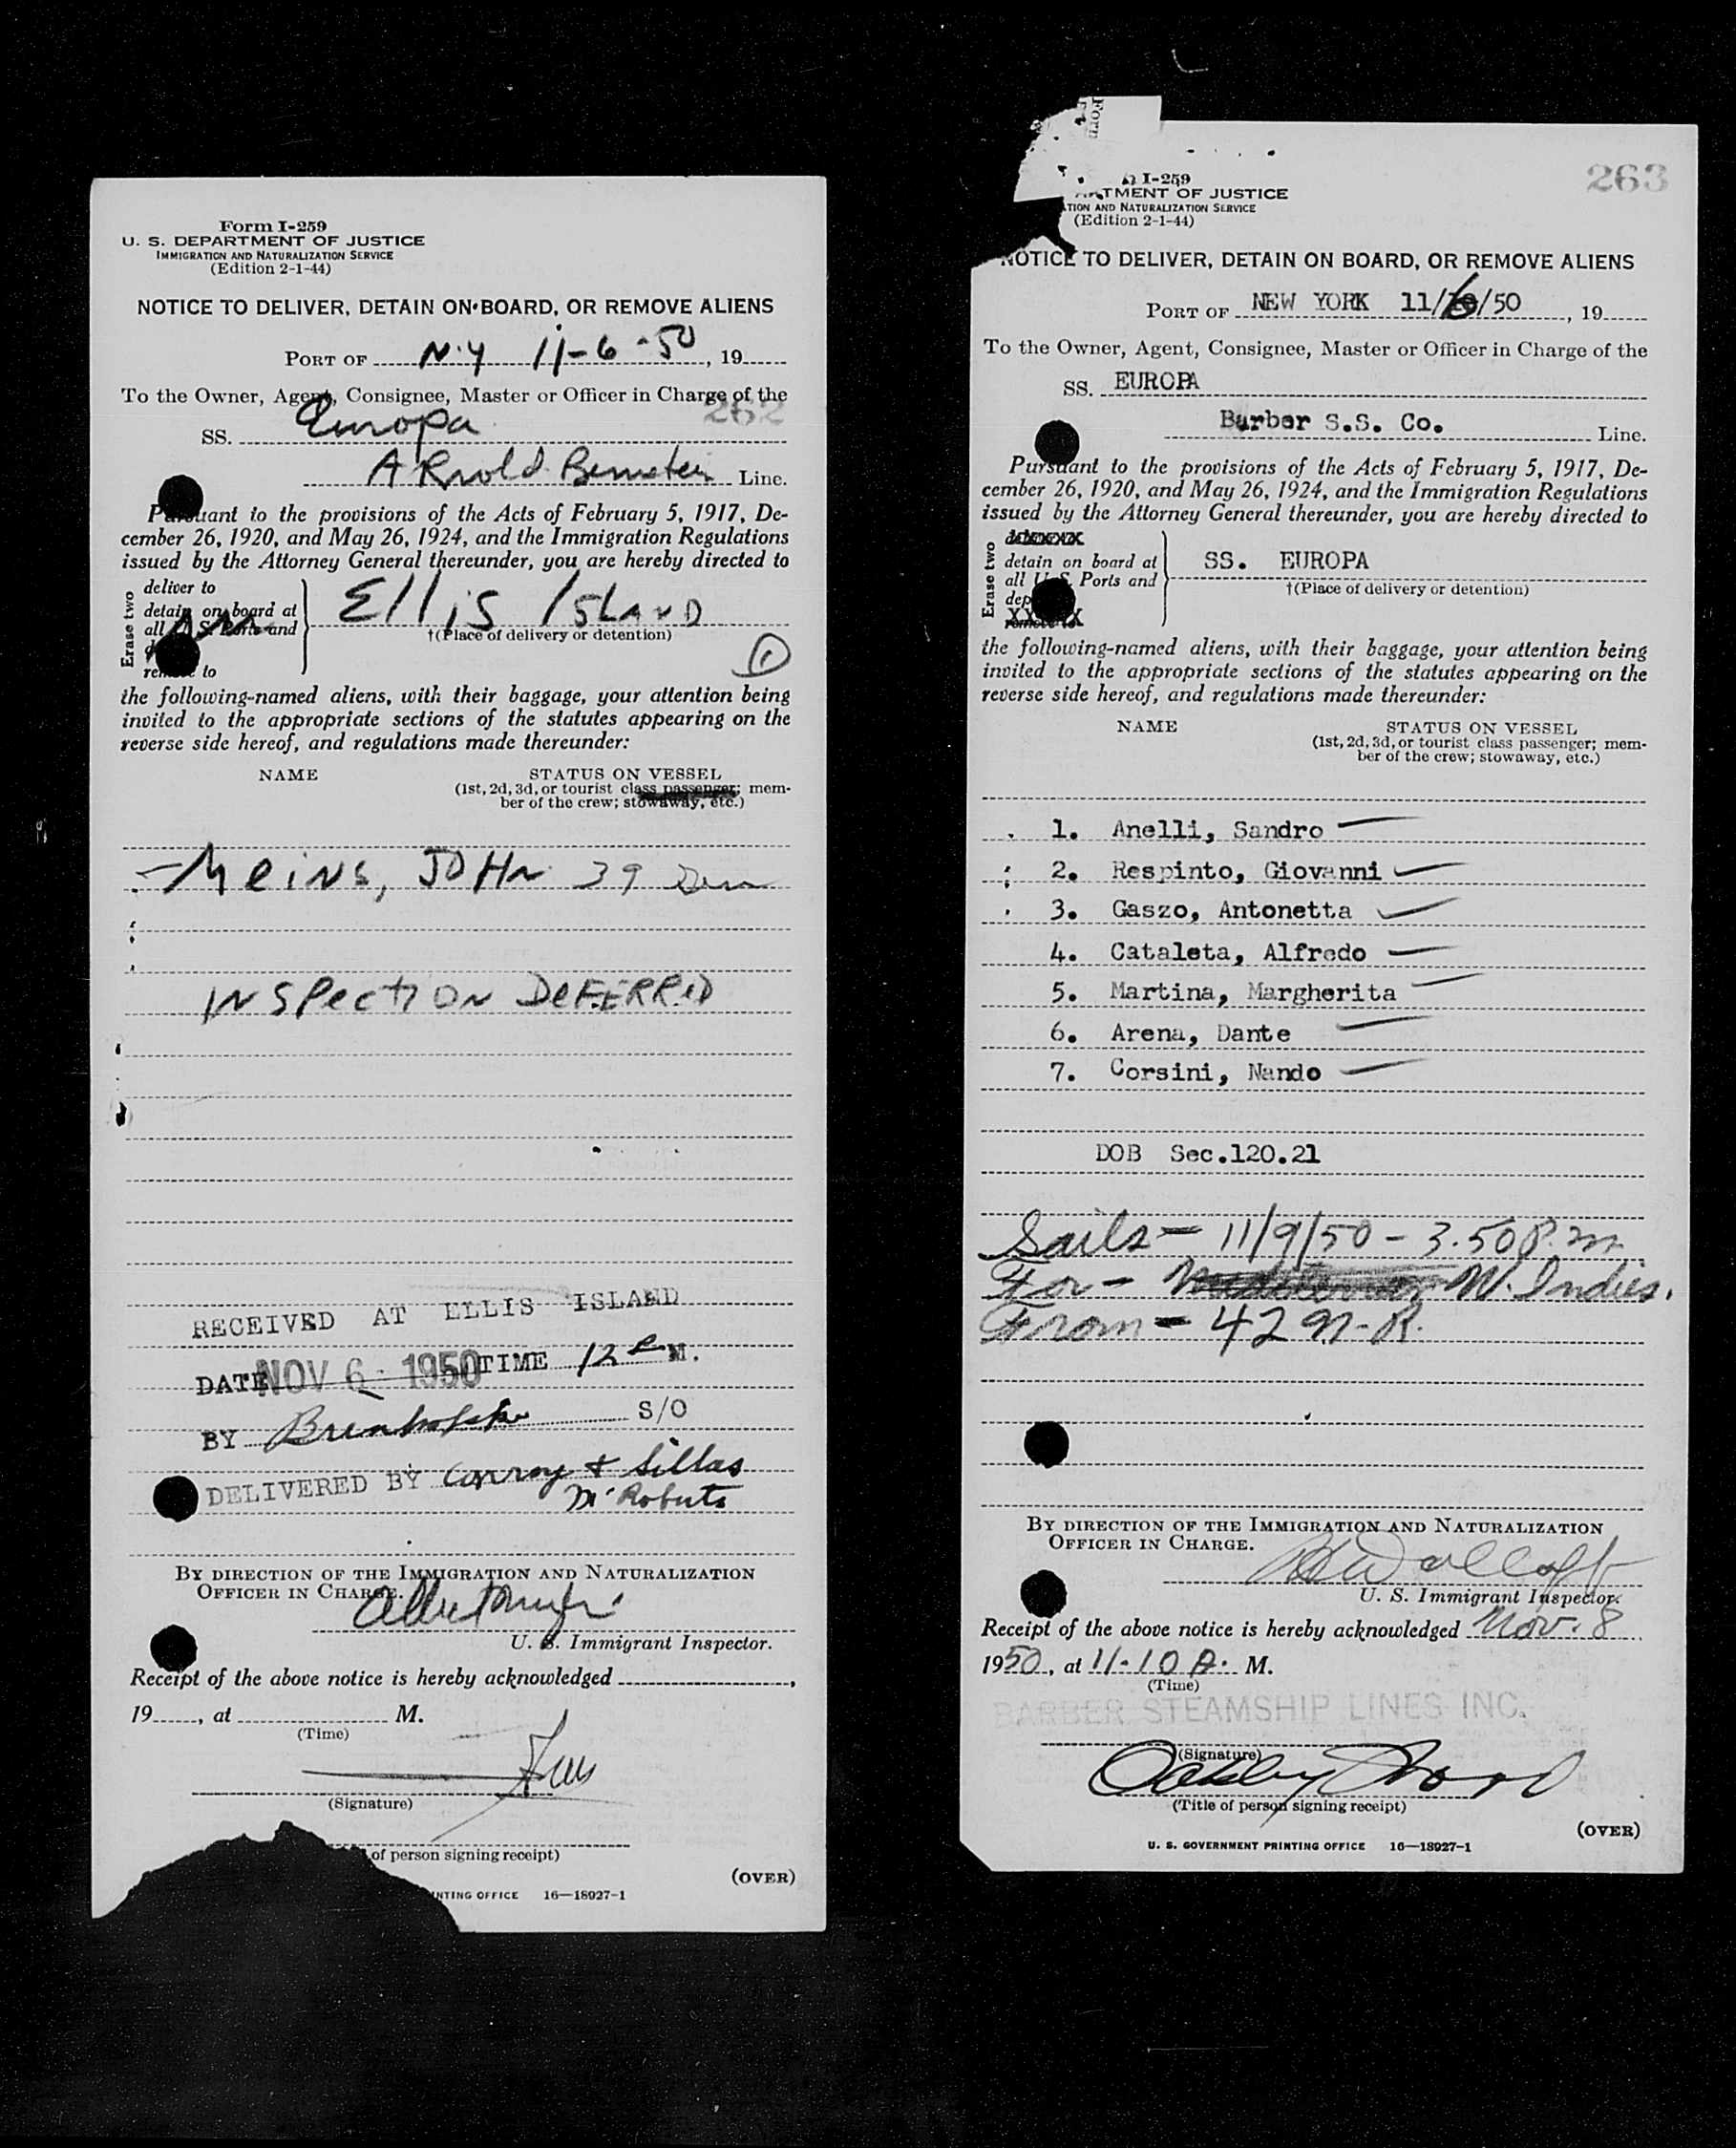 Form I-259
U. S. DEPARTMENT OF JUSTICE
IMMIGRATION AND NATURALIZATION SERVICE
(Edition 2-1-44)
NOTICE TO DELIVER, DETAIN ON BOARD, OR REMOVE ALIENS
PORT OF N.Y 11-6-50, 19
To the Owner, Agent, Consignee, Master or Officer in Charge of the
262
SS. Europa
ARnold Bernstein Line.
Pursuant to the provisions of the Acts of February 5, 1917, De-
cember 26, 1920, and May 26, 1924, and the Immigration Regulations
issued by the Attorney General thereunder, you are hereby directed to
Erase two
deliver to
detain on board at
all U.S. Ports and
remove to
Ellis Island
†(Place of delivery or detention)
1
the following-named aliens, with their baggage, your attention being
invited to the appropriate sections of the statutes appearing on the
reverse side hereof, and regulations made thereunder:
NAME STATUS ON VESSEL
(1st, 2d, 3d, or tourist class passenger; mem-
ber of the crew; stowaway, etc.)
Meins, JOHn 39
INSPectION DeFERRED
RECEIVED AT ELLIS ISLAND
DATE NOV 6 - 1950 TIME 12 P M.
BY S/O
DELIVERED BY Conroy & Sillas
McRoberts
BY DIRECTION OF THE IMMIGRATION AND NATURALIZATION
OFFICER IN CHARGE.
U. S. Immigrant Inspector.
Receipt of the above notice is hereby acknowledged ,
19 , at M.
(Time)
(Signature)
of person signing receipt)
(OVER)
NTING OFFICE 16—18927-1
Form
263
I-259
TMENT OF JUSTICE
TION AND NATURALIZATION SERVICE
(Edition 2-1-44)
NOTICE TO DELIVER, DETAIN ON BOARD, OR REMOVE ALIENS
PORT OF NEW YORK 11/6/50, 19
To the Owner, Agent, Consignee, Master or Officer in Charge of the
SS. EUROPA
Barber S.S. Co. Line.
Pursuant to the provisions of the Acts of February 5, 1917, De-
cember 26, 1920, and May 26, 1924, and the Immigration Regulations
issued by the Attorney General thereunder, you are hereby directed to
Erase two
detain on board at
all U.S. Ports and
SS. EUROPA
†(Place of delivery or detention)
the following-named aliens, with their baggage, your attention being
invited to the appropriate sections of the statutes appearing on the
reverse side hereof, and regulations made thereunder:
NAME STATUS ON VESSEL
(1st, 2d, 3d, or tourist class passenger; mem-
ber of the crew; stowaway, etc.)
1. Anelli, Sandro
2. Respinto, Giovanni
3. Gaszo, Antonetta
4. Cataleta, Alfredo
5. Martina, Margherita
6. Arena, Dante
7. Corsini, Nando
DOB Sec.120.21
Sails - 11/9/50 - 3.50 P.m
For - W. Indies.
From - 42 N.R.
BY DIRECTION OF THE IMMIGRATION AND NATURALIZATION
OFFICER IN CHARGE.
U. S. Immigrant Inspector.
Receipt of the above notice is hereby acknowledged Nov. 8
1950, at 11-10 A. M.
(Time)
BARBER STEAMSHIP LINES INC.
(Signature)
(Title of person signing receipt)
(OVER)
U. S. GOVERNMENT PRINTING OFFICE 16—18927-1